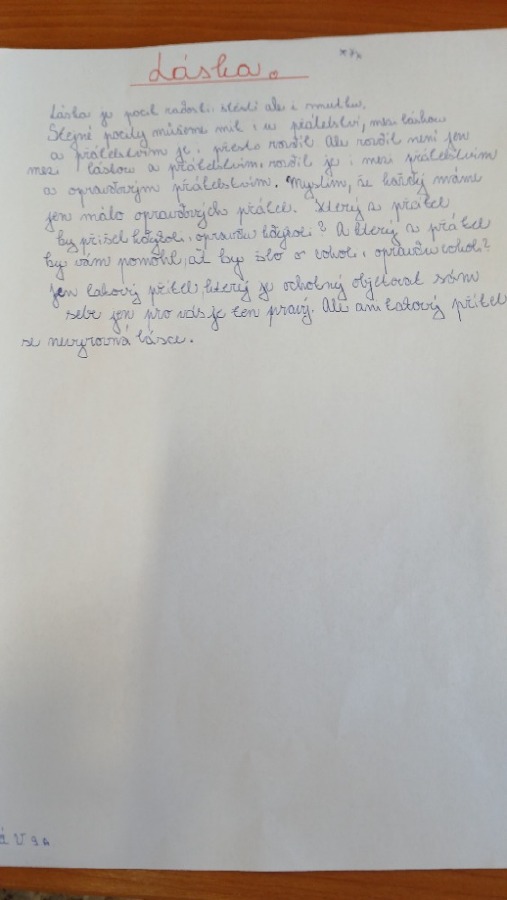 Láska.
Láska je pocit radosti, štěstí ale i smutku.
Stejné pocity můžeme mít i u přátelství, mezi láskou
a přátelstvím je i přesto rozdíl. Ale rozdíl není jen
mezi láskou a přátelstvím, rozdíl je i mezi přátelstvím
a opravdovým přátelstvím. Myslím, že každý máme
jen málo opravdových přátel. Který z přátel
by přišel kdykoli, opravdu kdykoli? A který z přátel
by vám pomohl, ať by šlo o cokoli, opravdu cokoli?
Jen takový přítel, který je ochotný obětovat sám
sebe jen pro vás je ten pravý. Ale ani takový přítel
se nevyrovná lásce.